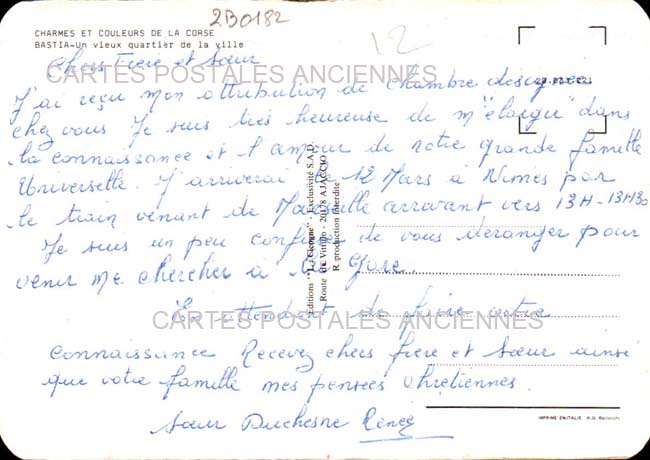 2B0182
12
CHARMES ET COULEURS DE LA CORSE
BASTIA-Un vieux quartier de la ville
Chers Frère et Sœur
CARTES POSTALES ANCIENNES
J'ai reçu mon attribution de chambre
chez vous Je suis très heureuse de m"élargir" dans
la connaissance et l'amour de notre grande famille
Universelle. J'arriverai le 12 Mars à Nimes par
le train venant de Marseille arrivant vers 13H-13H30
Je suis un peu confuse de vous déranger pour
venir me chercher à la Gare.
En attendant de faire votre
CARTES POSTALES ANCIENNES
connaissance Recevez chers frère et Sœur ainsi
que votre famille mes pensées chrétiennes.
Sœur Duchesne Renée
Editions "La Cicogne" - Exclusivité S.A.D.
Route de Vittulo - 20178 AJACCIO
Reproduction interdite
IMPRIME EN ITALIE